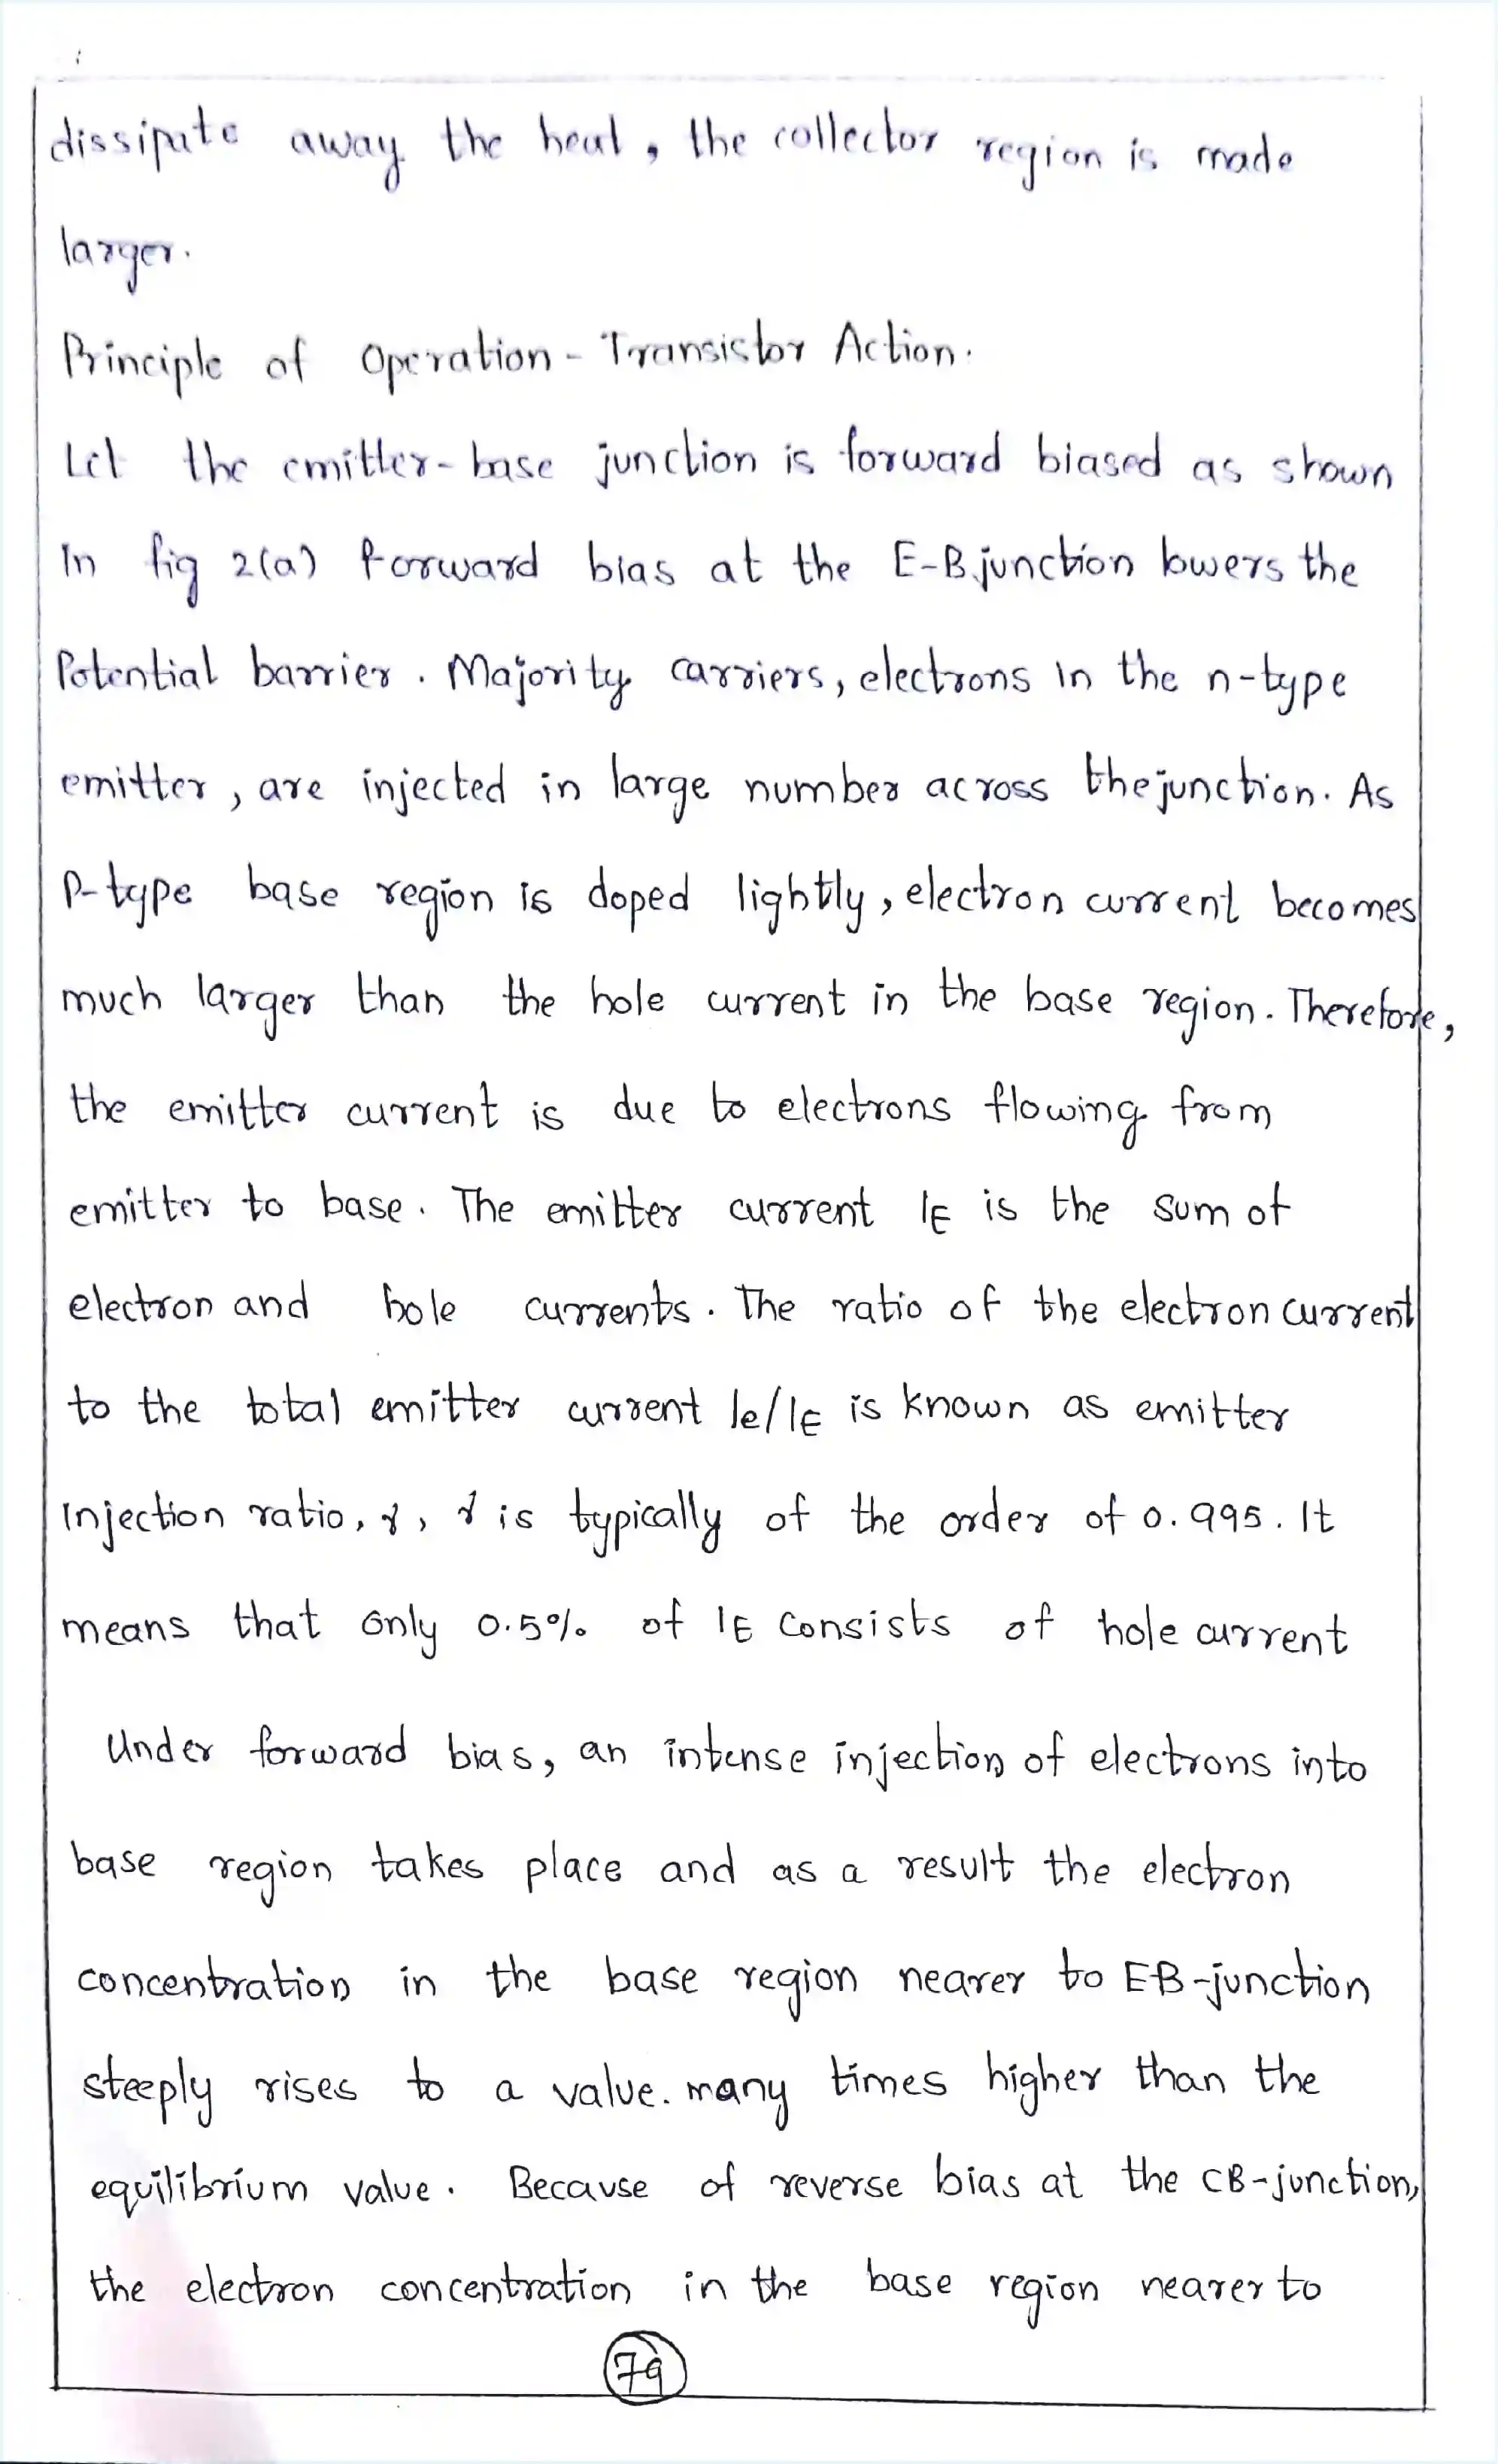 dissipate away the heat, the collector region is made
larger.
Principle of Operation - Transistor Action.
Let the emitter-base junction is forward biased as shown
In fig 2(a) Forward bias at the E-B junction lowers the
Potential barrier. Majority carriers, electrons in the n-type
emitter, are injected in large number across the junction. As
P-type base region is doped lightly, electron current becomes
much larger than the hole current in the base region. Therefore,
the emitter current is due to electrons flowing from
emitter to base. The emitter current IE is the sum of
electron and hole currents. The ratio of the electron current
to the total emitter current Ie/IE is known as emitter
Injection ratio, γ, γ is typically of the order of 0.995. It
means that only 0.5% of IE consists of hole current
Under forward bias, an intense injection of electrons into
base region takes place and as a result the electron
concentration in the base region nearer to EB-junction
steeply rises to a value. many times higher than the
equilibrium value. Because of reverse bias at the CB-junction,
the electron concentration in the base region nearer to
79